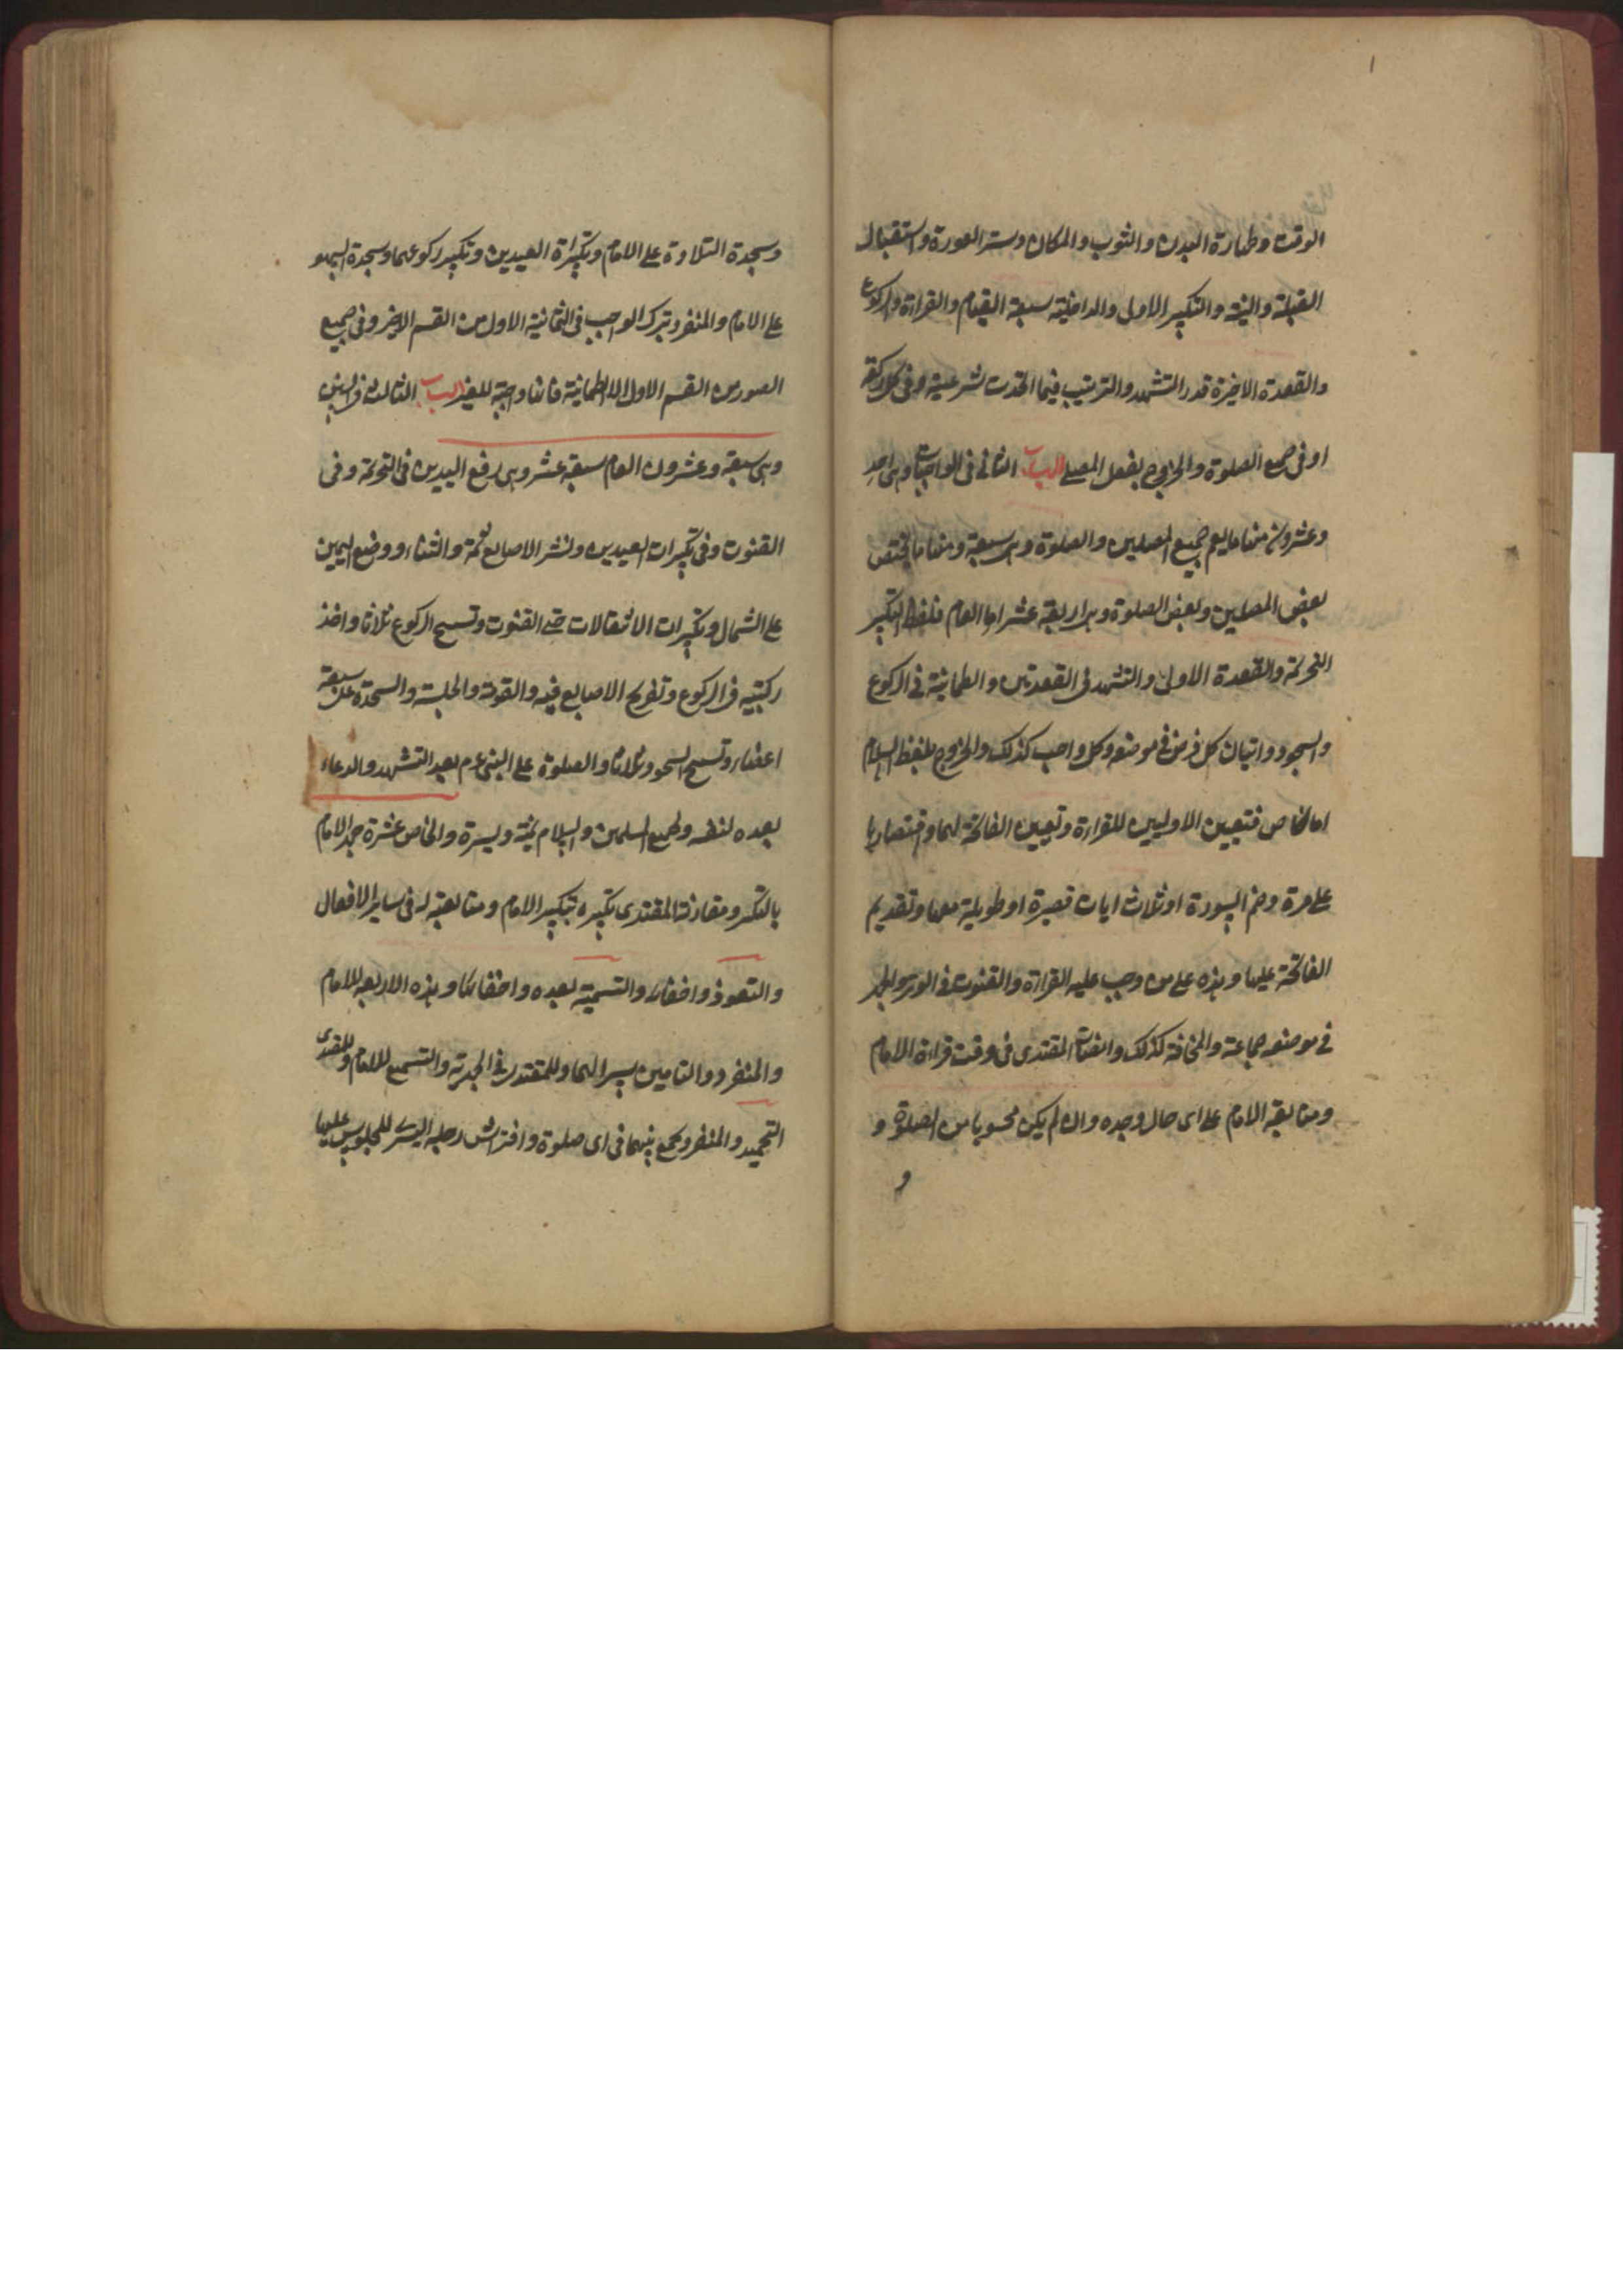 الوقت وطهارة البدن والثوب والمكان وستر العورة واستقبال
القبلة والنية والتكبير الاولى والداخلية سبعة القيام والقراءة والركوع
والقعدة الاخيرة قدر التشهد والترتيب فيما اتحدت شرعية وفي كل ركعة
او في جميع الصلوة والخروج بفعل المصلي الباب الثاني في الواجبات وهي احد
وعشرون منها ما يعم جميع المصلين والصلوة وهي سبعة ومنها ما يختص
بعض المصلين وبعض الصلوة وهي اربعة عشر اما العام فلفظ التكبير
التحريمة والقعدة الاولى والتشهد في القعدتين والطمانية في الركوع
والسجود واتيان كل فرض في موضعه وكل واجب كذلك والخروج بلفظ السلام
اما الخاص فتعيين الاوليين للقراءة وتعيين الفاتحة لهما واقتصارها
على مرة وضم السورة او ثلاث ايات قصيرة او طويلة معها وتقديم
الفاتحة عليها وهذه على من وجب عليه القراءة والقنوت في الوتر والجهر
في موضعه جماعة والمخافة كذلك وانصات المقتدى في وقت قراءة الامام
ومتابعة الامام على اى حال وجده وان لم يكن محسوبا من الصلوة و
و
وسجدة التلاوة على الامام وتكبيراة العيدين وتكبير ركوعهما وسجدة السهو
على الامام والمنفرد بترك الواجب في الثمانية الاول من القسم الاخير وفي جميع
الصور من القسم الاول الا الطمانية فانها واجبة للغير الباب الثالث في السنن
وهي سبعة وعشرون العام سبعة عشر وهي رفع اليدين في التحريمة وفي
القنوت وفي تكبيرات العيدين ونشر الاصابع ثمة والثناء ووضع اليمين
على الشمال وتكبيرات الانتقالات حتى القنوت وتسبيح الركوع ثلاثا واخذ
ركبتيه في الركوع وتفريج الاصابع فيه والقومة والجلسة والسجدة على سبعة
اعضاء وتسبيح السجود ثلاثا والصلوة على النبي عم بعد التشهد والدعاء
بعده لنفسه ولجميع المسلمين والسلام يمنة ويسرة والخاص عشرة جهر الامام
بالتكبير ومقارنة المقتدى تكبيره بتكبير الامام ومتابعته له في ساير الافعال
والتعوذ واخفاء والتسمية بعده واخفائها وهذه الاربعة للامام
والمنفرد والتامين سرا لهما وللمقتدى في الجهرية والتسميع للامام وللمقتدى
التحميد والمنفرد يجمع بينهما في اى صلوة وافتراش رجله اليسرى للجلوس عليها